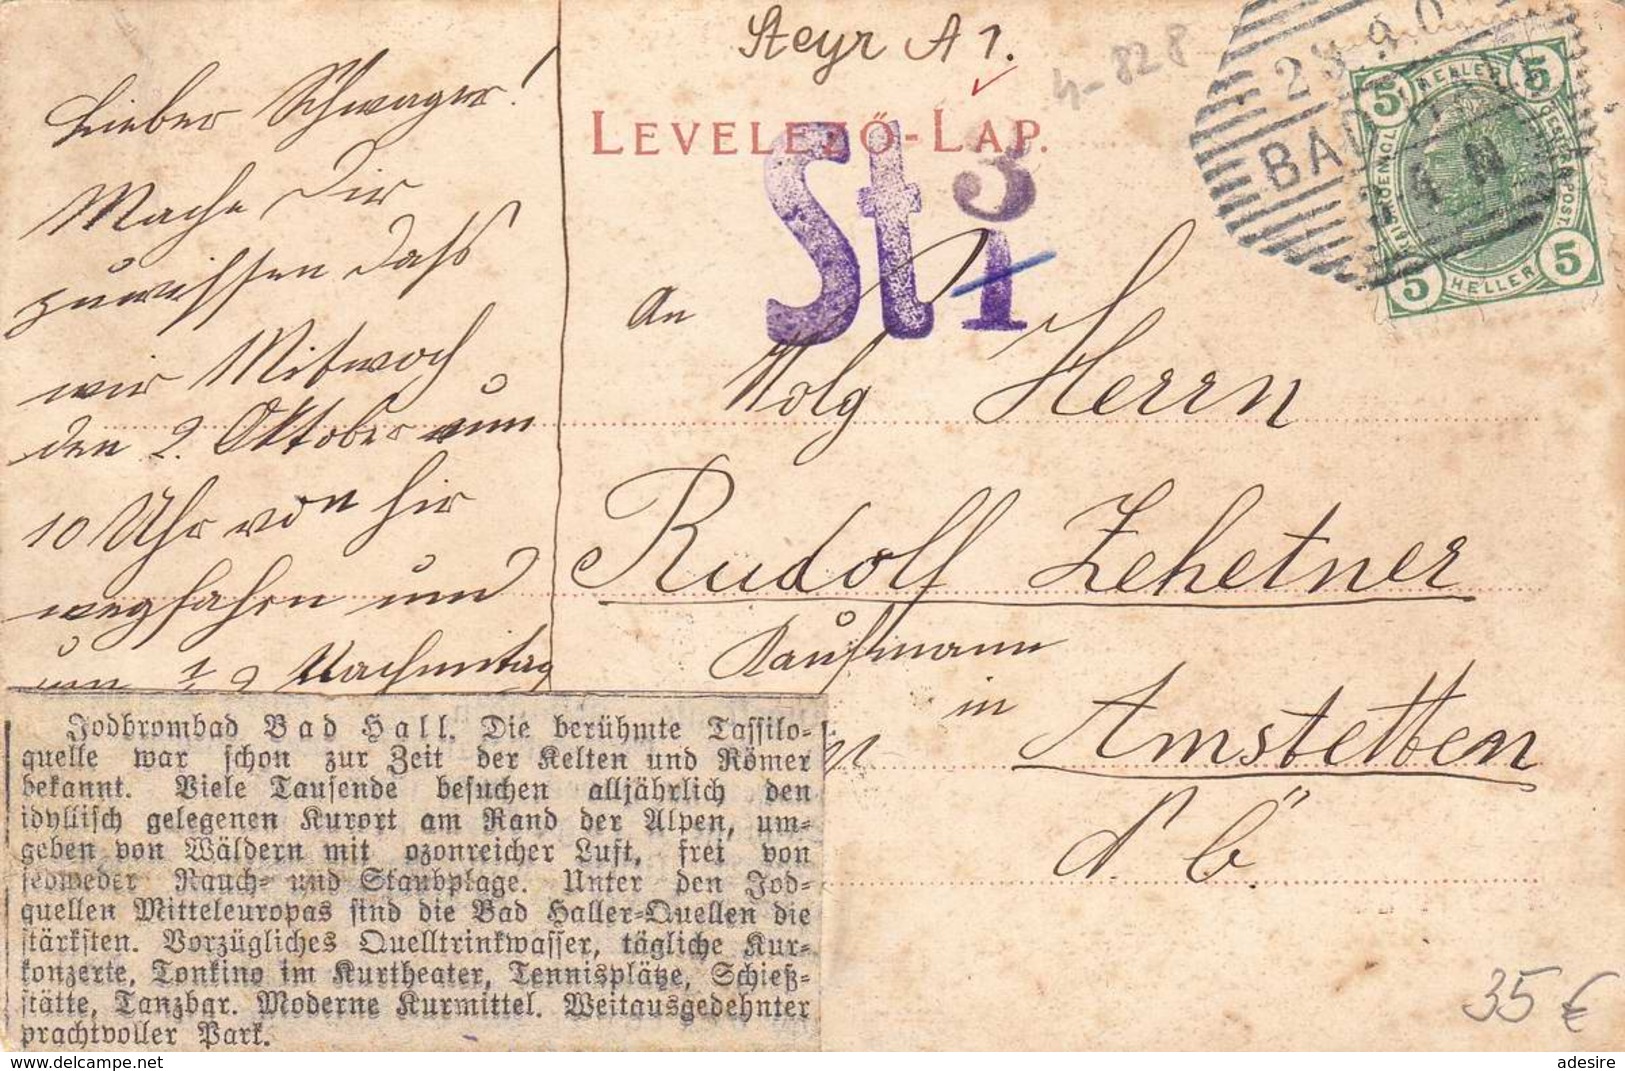 Steyr A 1.
4-828
Lieber Schwager!
Mache Dir
zuwissen dass
wir Mitwoch
den 2. Oktober um
10 Uhr von hir
wegfahrn und
um ½ 2 Nachmitag
LEVELEZŐ-LAP.
St 3
1
BAD
5 HELLER 5
5 HELLER 5
An
Wolg Herrn
Rudolf Zehetner
Kaufmann
in
Amstetten
N. Ö.
Jodbrombad Bad Hall. Die berühmte Tassilo-
quelle war schon zur Zeit der Kelten und Römer
bekannt. Viele Tausende besuchen alljährlich den
idyllisch gelegenen Kurort am Rand der Alpen, um-
geben von Wäldern mit ozonreicher Luft, frei von
jedweder Rauch- und Staubplage. Unter den Jod-
quellen Mitteleuropas sind die Bad Haller-Quellen die
stärksten. Vorzügliches Quelltrinkwasser, tägliche Kur-
konzerte, Tonkino im Kurtheater, Tennisplätze, Schieß-
stätte, Tanzbar. Moderne Kurmittel. Weitausgedehnter
prachtvoller Park.
35 €
adesire